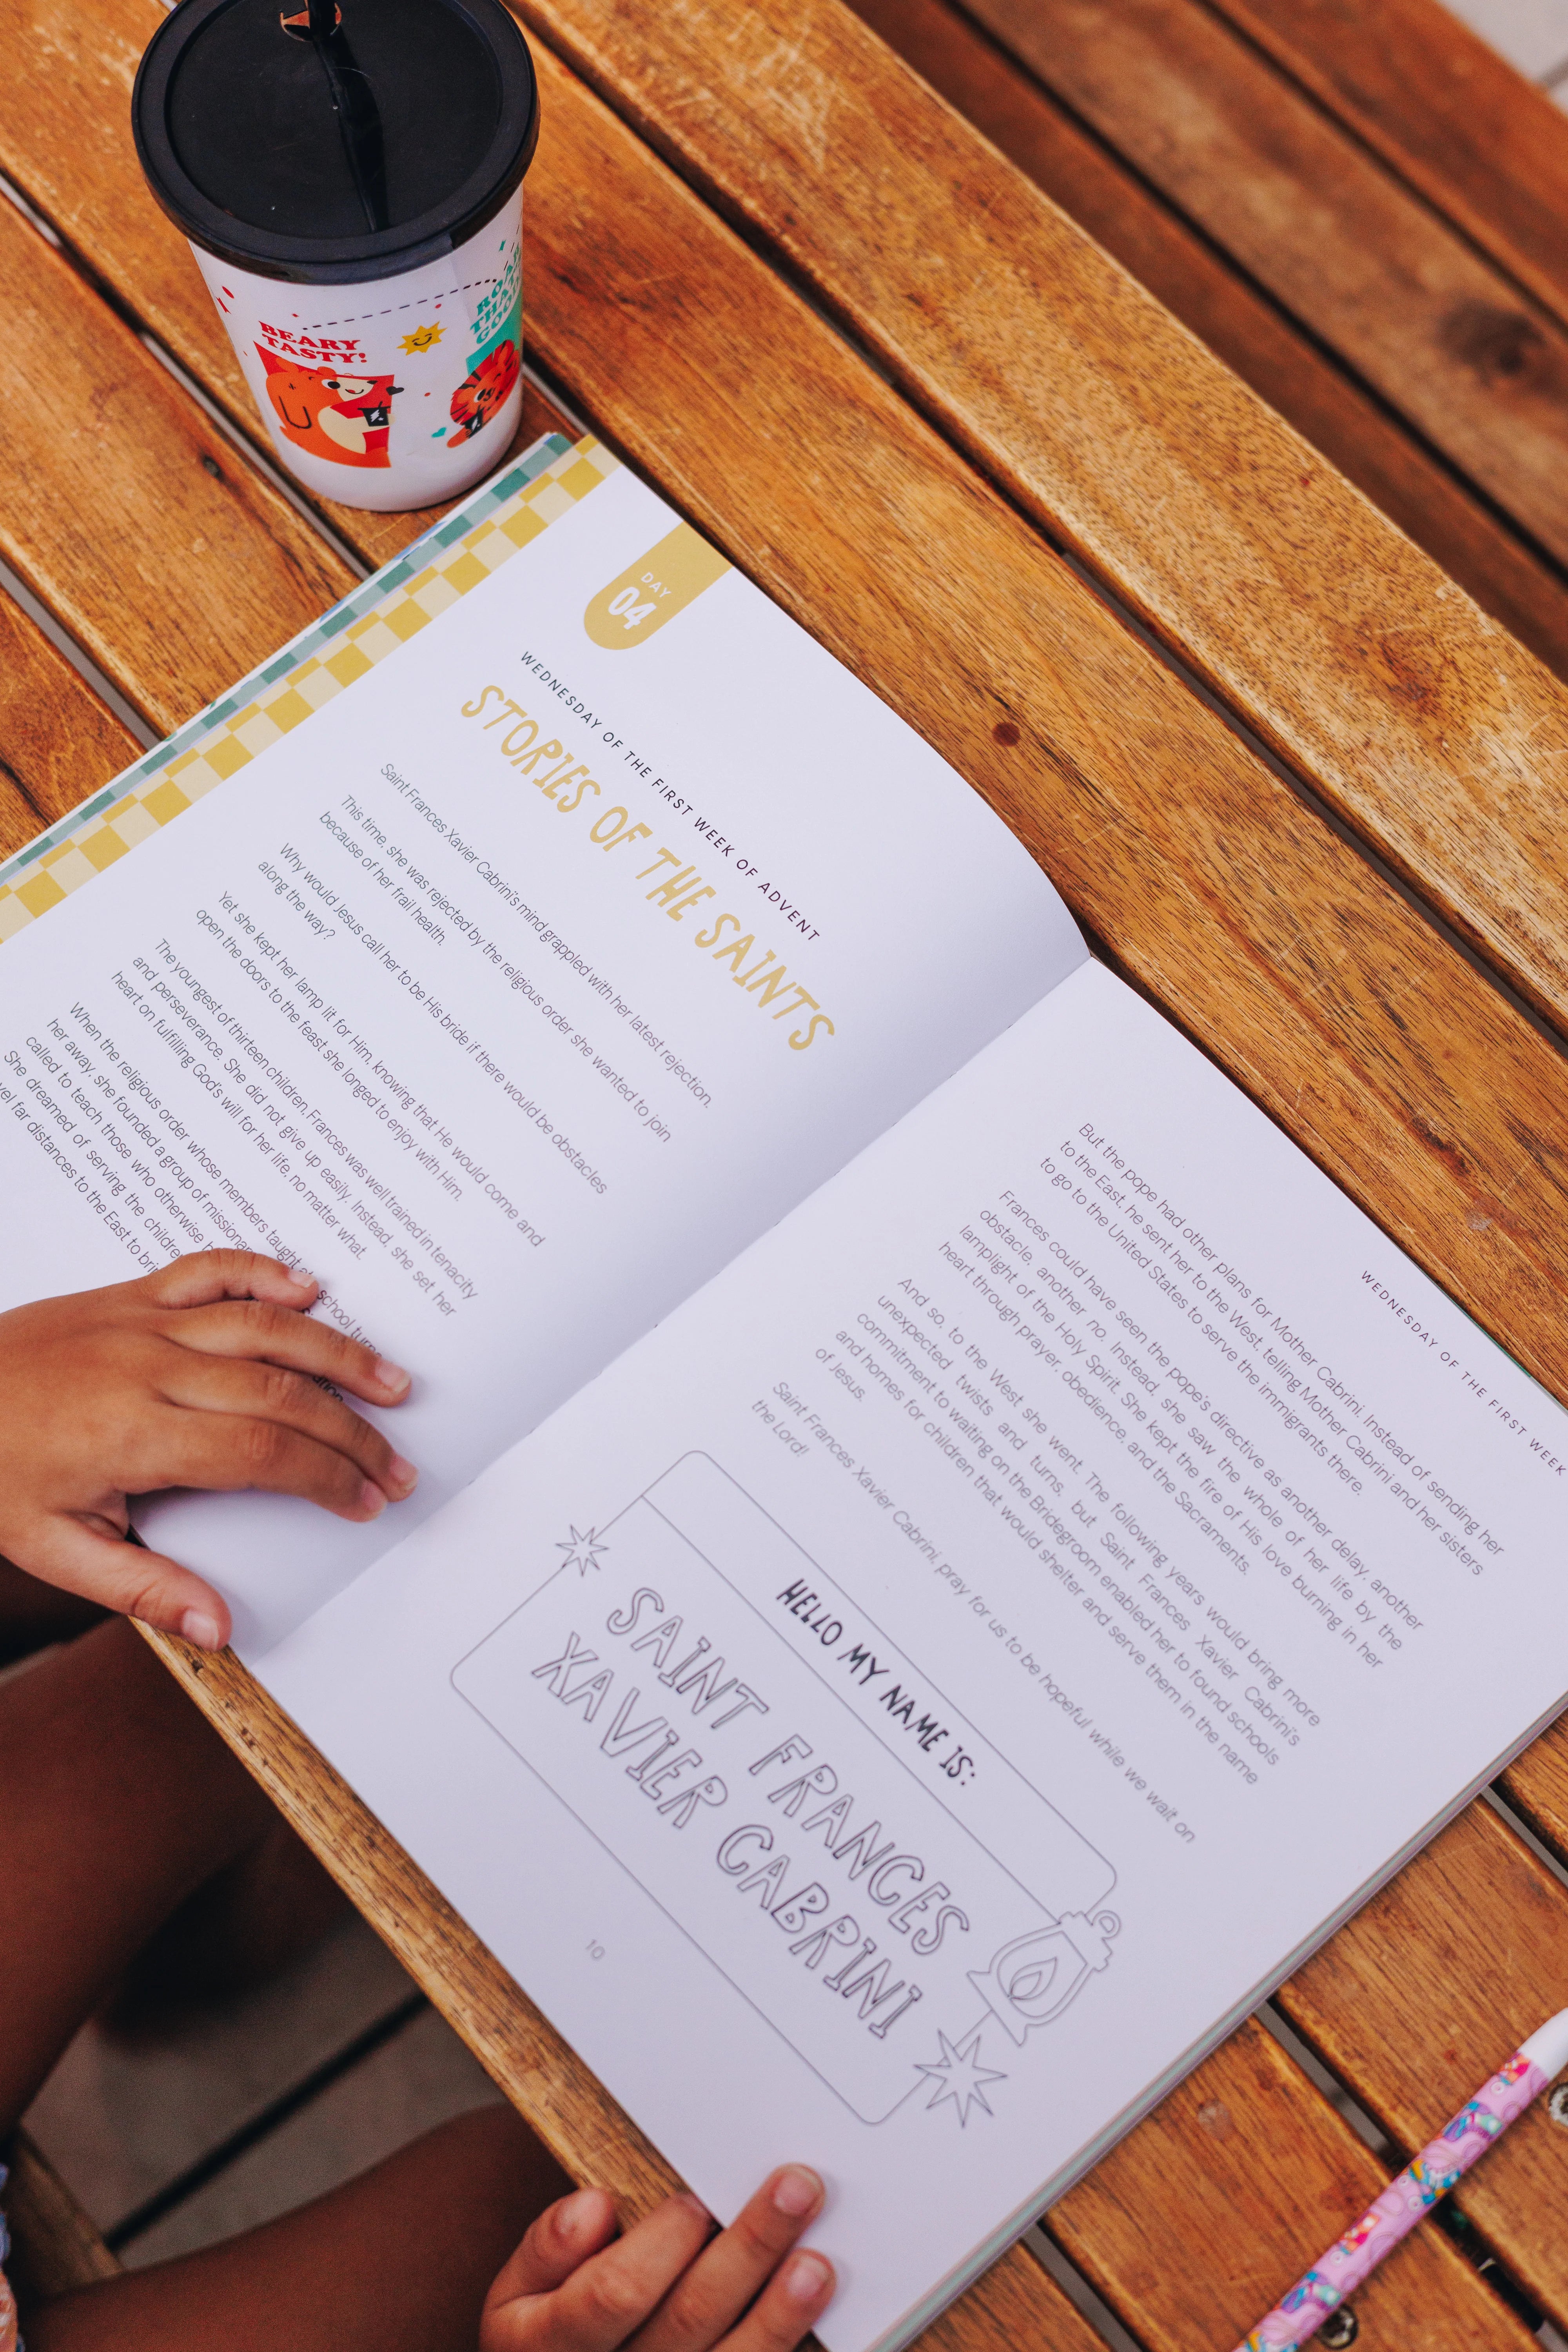 BEARY
TASTY!
ROAR
THAT'S
GOOD
DAY
04
WEDNESDAY OF THE FIRST WEEK OF ADVENT
STORIES OF THE SAINTS
Saint Frances Xavier Cabrini's mind grappled with her latest rejection.
This time, she was rejected by the religious order she wanted to join
because of her frail health.
Why would Jesus call her to be His bride if there would be obstacles
along the way?
Yet she kept her lamp lit for Him, knowing that He would come and
open the doors to the feast she longed to enjoy with Him.
The youngest of thirteen children, Frances was well trained in tenacity
and perseverance. She did not give up easily. Instead, she set her
heart on fulfilling God's will for her life, no matter what.
When the religious order whose members taught at school
her away, she founded a group of
called to teach those who otherwise
She dreamed of serving the
far distances to the East to
WEDNESDAY OF THE FIRST WEEK
But the pope had other plans for Mother Cabrini. Instead of sending her
to the East, he sent her to the West, telling Mother Cabrini and her sisters
to go to the United States to serve the immigrants there.
Frances could have seen the pope's directive as another delay, another
obstacle, another no. Instead, she saw the whole of her life by the
lamplight of the Holy Spirit. She kept the fire of His love burning in her
heart through prayer, obedience, and the Sacraments.
And so, to the West she went. The following years would bring more
unexpected twists and turns, but Saint Frances Xavier Cabrini's
commitment to waiting on the Bridegroom enabled her to found schools
and homes for children that would shelter and serve them in the name
of Jesus.
Saint Frances Xavier Cabrini, pray for us to be hopeful while we wait on
the Lord!
HELLO MY NAME IS:
SAINT FRANCES
XAVIER CABRINI
10